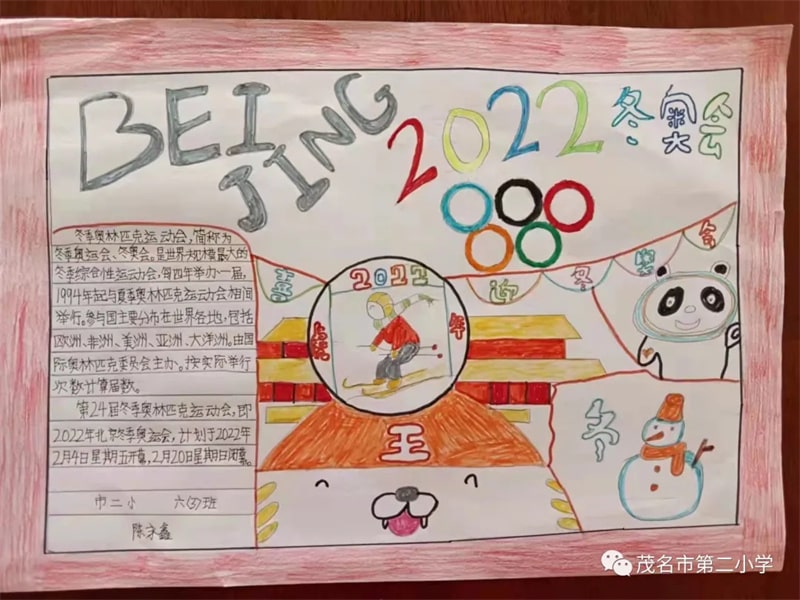 BEI
JING
2022冬奥会
喜迎冬奥会
冬季奥林匹克运动会,简称为
冬季奥运会、冬奥会。是世界规模最大的
冬季综合性运动会,每四年举办一届,
1994年起与夏季奥林匹克运动会相间
举行。参与国主要分布在世界各地,包括
欧洲、非洲、美洲、亚洲、大洋洲。由国
际奥林匹克委员会主办。按实际举行
次数计算届数。
第24届冬季奥林匹克运动会,即
2022年北京冬季奥运会,计划于2022年
2月4日星期五开幕,2月20日星期日闭幕。
市二小 六(3)班
2022
虎年
王
冬
茂名市第二小学